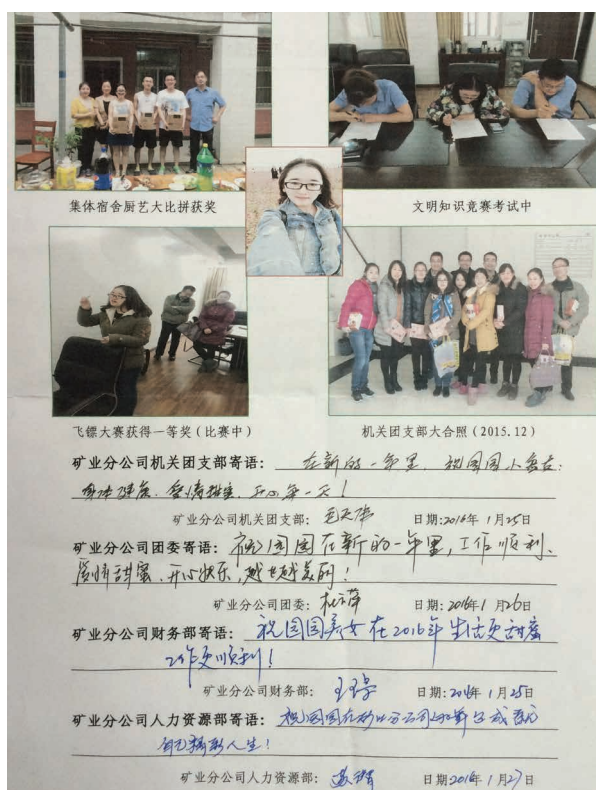 集体宿舍厨艺大比拼获奖
文明知识竞赛考试中
飞镖大赛获得一等奖（比赛中）
机关团支部大合照（2015.12）
矿业分公司机关团支部寄语：在新的一年里，祝园园小寿星：
身体健康、爱情甜蜜、开心每一天！
矿业分公司机关团支部： 日期：2016年 1月25日
矿业分公司团委寄语：祝园园在新的一年里，工作顺利、
爱情甜蜜、开心快乐，越来越美丽！
矿业分公司团委： 日期：2016年 1月26日
矿业分公司财务部寄语：祝园园美女在2016年生活更甜蜜
工作更顺利！
矿业分公司财务部： 日期：2016年 1月25日
矿业分公司人力资源部寄语：祝园园在矿业分公司的舞台成就
自己精彩人生！
矿业分公司人力资源部： 日期2016年 1月27日